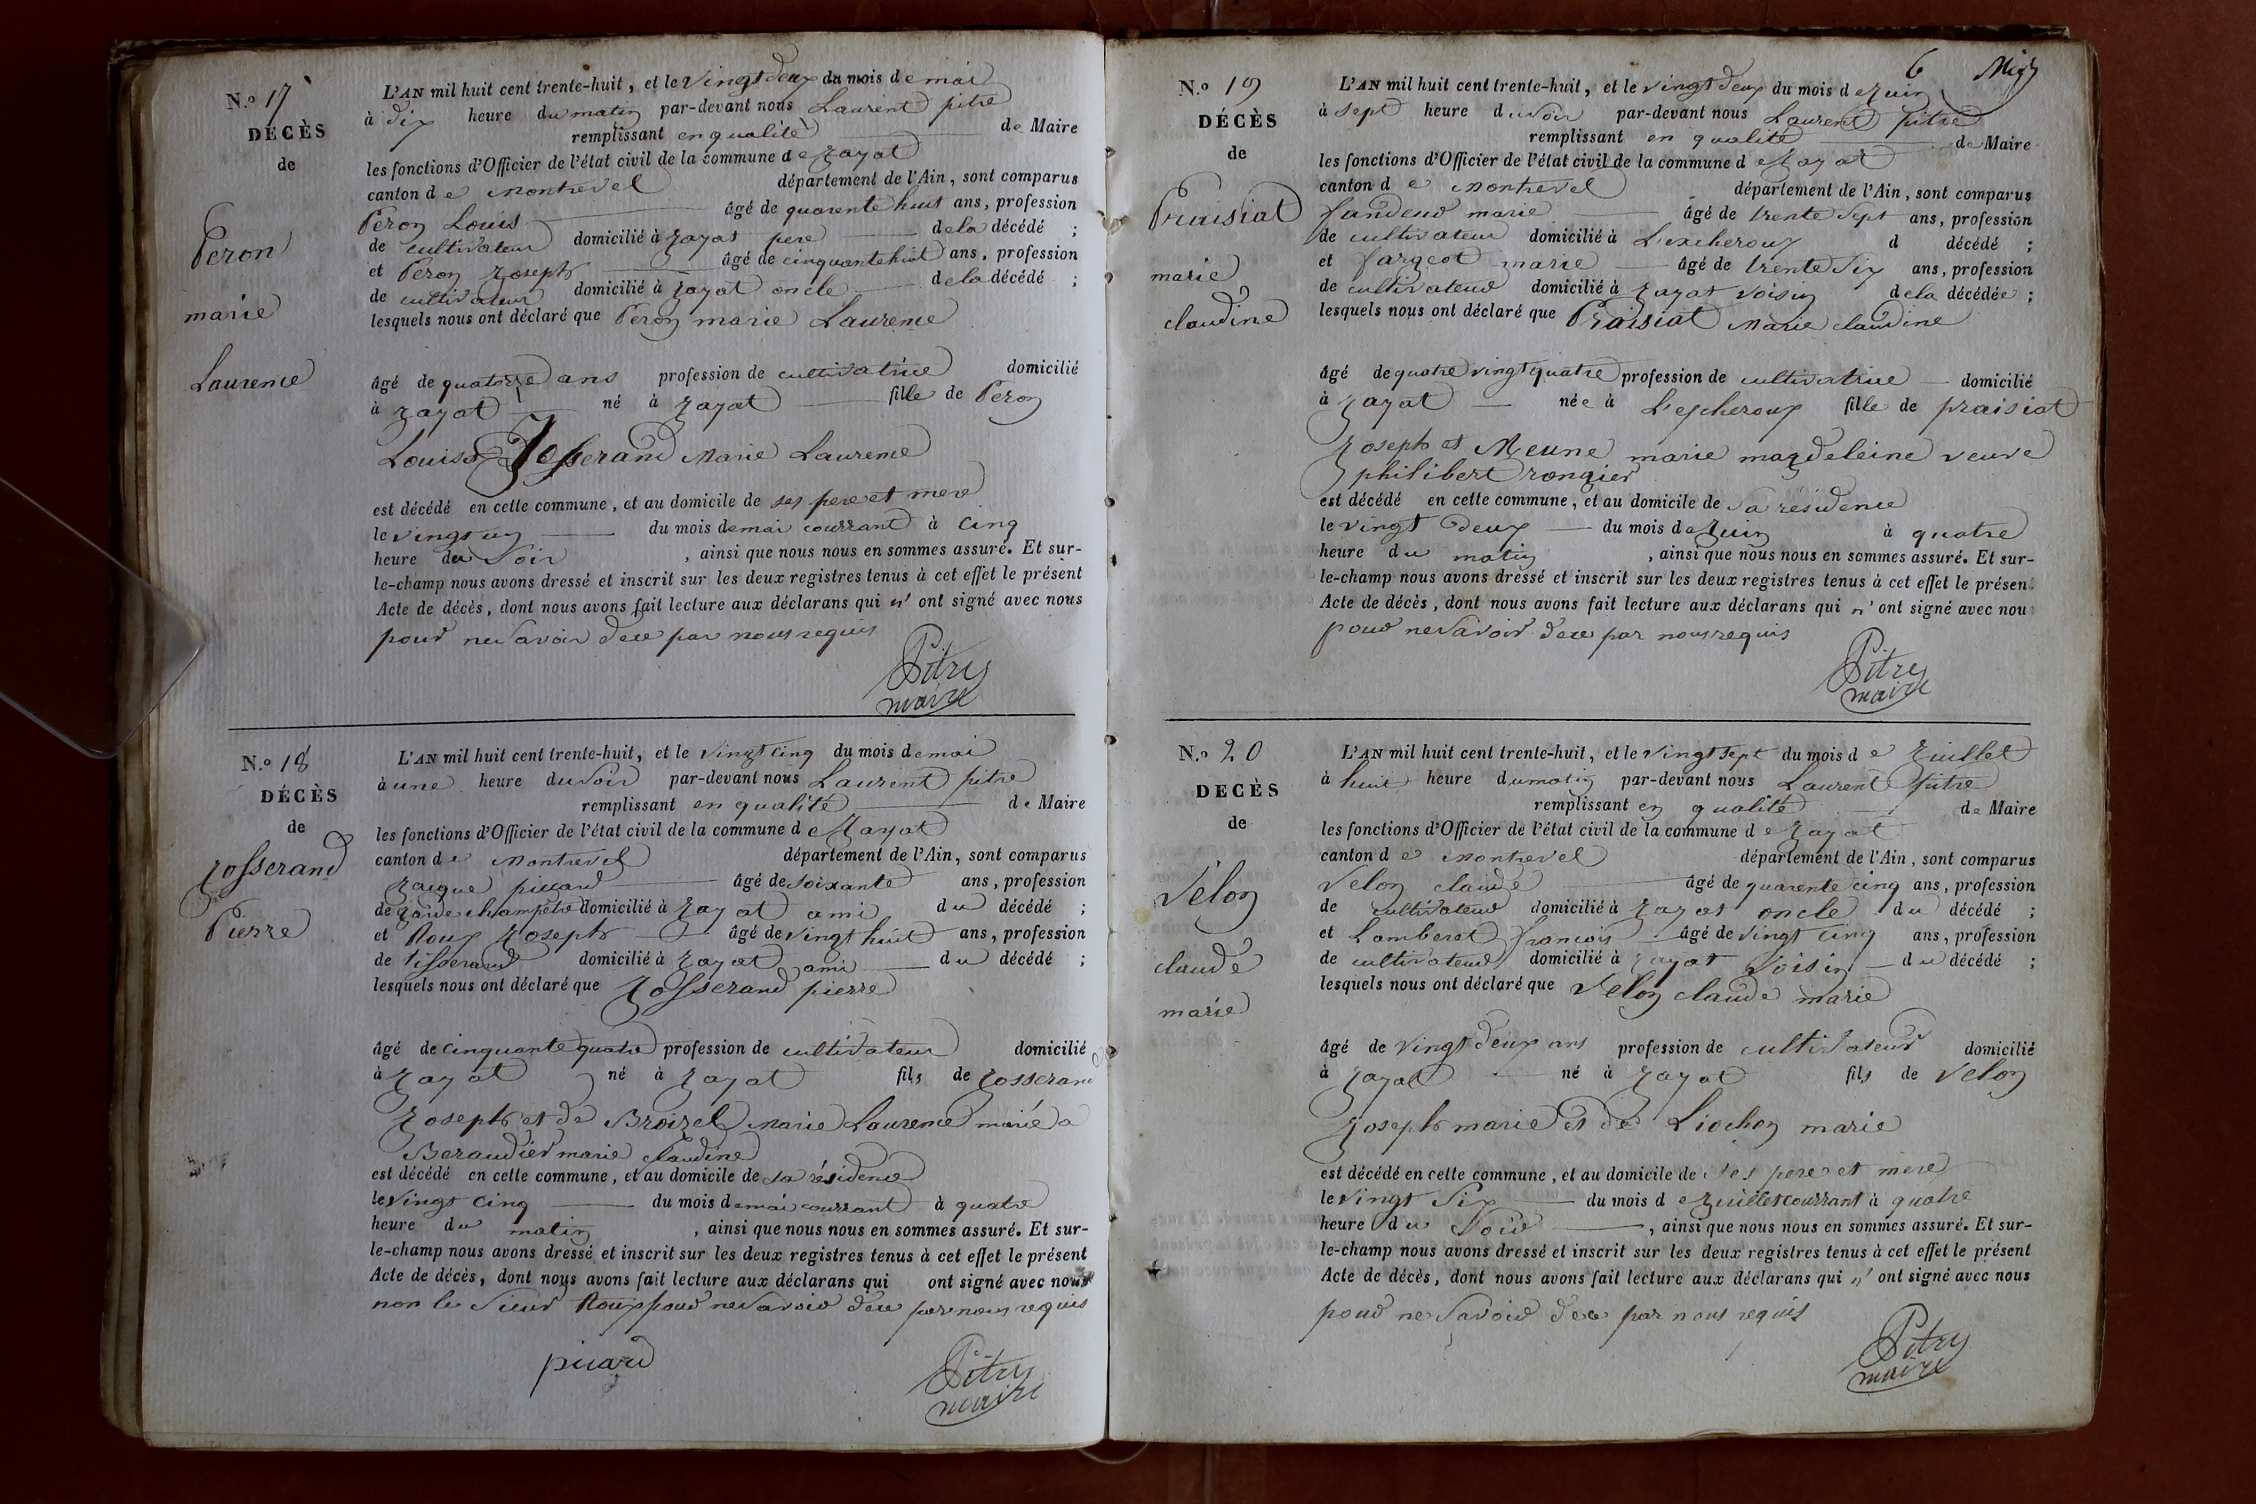 N.o 17
DÉCÈS
de
Peron
marie
Laurence
L'AN mil huit cent trente-huit, et le vingt deux du mois de mai
à dix heure du matin par-devant nous Laurent pitre
remplissant en qualité de Maire
les fonctions d'Officier de l'état civil de la commune de Jayat
canton de Montrevel département de l'Ain, sont comparus
Peron Louis âgé de quarente huit ans, profession
de cultivateur domicilié à Jayat pere de la décédé ;
et Peron Joseph âgé de cinquante huit ans, profession
de cultivateur domicilié à Jayat oncle de la décédé ;
lesquels nous ont déclaré que Peron marie Laurence
âgé de quatorze ans profession de cultivatrice domicilié
à Jayat né à Jayat fille de Peron
Louis et Josserand Marie Laurence
est décédé en cette commune, et au domicile de ses pere et mere
le vingt un du mois de mai courrant à cinq
heure du Soir , ainsi que nous nous en sommes assuré. Et sur-
le-champ nous avons dressé et inscrit sur les deux registres tenus à cet effet le présent
Acte de décès, dont nous avons fait lecture aux déclarans qui n' ont signé avec nous
pour ne savoir de ce par nous requis
Pitre
maire
N.o 18
DÉCÈS
de
Josserand
Pierre
L'AN mil huit cent trente-huit, et le vingt cinq du mois de mai
à une heure du Soir par-devant nous Laurent pitre
remplissant en qualité de Maire
les fonctions d'Officier de l'état civil de la commune de Jayat
canton de Montrevel département de l'Ain, sont comparus
Jacque piccard âgé de soixante ans, profession
de garde champetre domicilié à Jayat ami du décédé ;
et Roux Joseph âgé de vingt huit ans, profession
de tisserand domicilié à Jayat ami du décédé ;
lesquels nous ont déclaré que Josserand pierre
âgé de cinquante quatre profession de cultivateur domicilié
à Jayat né à Jayat fils de Josserand
Joseph et de Broizel Marie Laurence marié a
Beraudier marie claudine
est décédé en cette commune, et au domicile de sa résidence
le vingt cinq du mois de mai courrant à quatre
heure du matin , ainsi que nous nous en sommes assuré. Et sur-
le-champ nous avons dressé et inscrit sur les deux registres tenus à cet effet le présent
Acte de décès, dont nous avons fait lecture aux déclarans qui ont signé avec nous
non le Sieur Roux pour ne savoir de ce par nous requis
picard
Pitre
maire
6
N.o 19
DÉCÈS
de
Praisiat
marie
claudine
L'AN mil huit cent trente-huit, et le vingt deux du mois de Juin
à sept heure du soir par-devant nous Laurent pitre
remplissant en qualité de Maire
les fonctions d'Officier de l'état civil de la commune de Jayat
canton de Montrevel département de l'Ain, sont comparus
marie âgé de trente Sept ans, profession
de cultivateur domicilié à L'excheroux d décédé ;
et fargeot marie âgé de trente Six ans, profession
de cultivateur domicilié à Jayat voisin de la décédée ;
lesquels nous ont déclaré que Praisiat Marie claudine
âgé de quatre vingt quatre profession de cultivatrice domicilié
à Jayat née à L'excheroux fille de praisiat
Joseph et Meune marie magdeleine veuve
philibert rongier
est décédé en cette commune, et au domicile de Sa résidence
le vingt deux du mois de Juin à quatre
heure du matin , ainsi que nous nous en sommes assuré. Et sur-
le-champ nous avons dressé et inscrit sur les deux registres tenus à cet effet le présen
Acte de décès, dont nous avons fait lecture aux déclarans qui n' ont signé avec nou
pour ne savoir de ce par nous requis
Pitre
maire
N.o 20
DECÈS
de
Velon
claude
marie
L'AN mil huit cent trente-huit, et le vingt Sept du mois de Juillet
à huit heure du matin par-devant nous Laurent pitre
remplissant en qualité de Maire
les fonctions d'Officier de l'état civil de la commune de Jayat
canton de Montrevel département de l'Ain, sont comparus
Velon claude âgé de quarente cinq ans, profession
de cultivateur domicilié à Jayat oncle du décédé ;
et Lamberet francois âgé de vingt cinq ans, profession
de cultivateur domicilié à Jayat Voisin du décédé ;
lesquels nous ont déclaré que Velon claude marie
âgé de vingt deux ans profession de cultivateur domicilié
à Jayat né à Jayat fils de Velon
Joseph marie et de Liochon marie
est décédé en cette commune, et au domicile de ses pere et mere
le vingt Six du mois de Juillet courrant à quatre
heure du Soir , ainsi que nous nous en sommes assuré. Et sur-
le-champ nous avons dressé et inscrit sur les deux registres tenus à cet effet le présent
Acte de décès, dont nous avons fait lecture aux déclarans qui n' ont signé avec nous
pour ne savoir de ce par nous requis
Pitre
maire